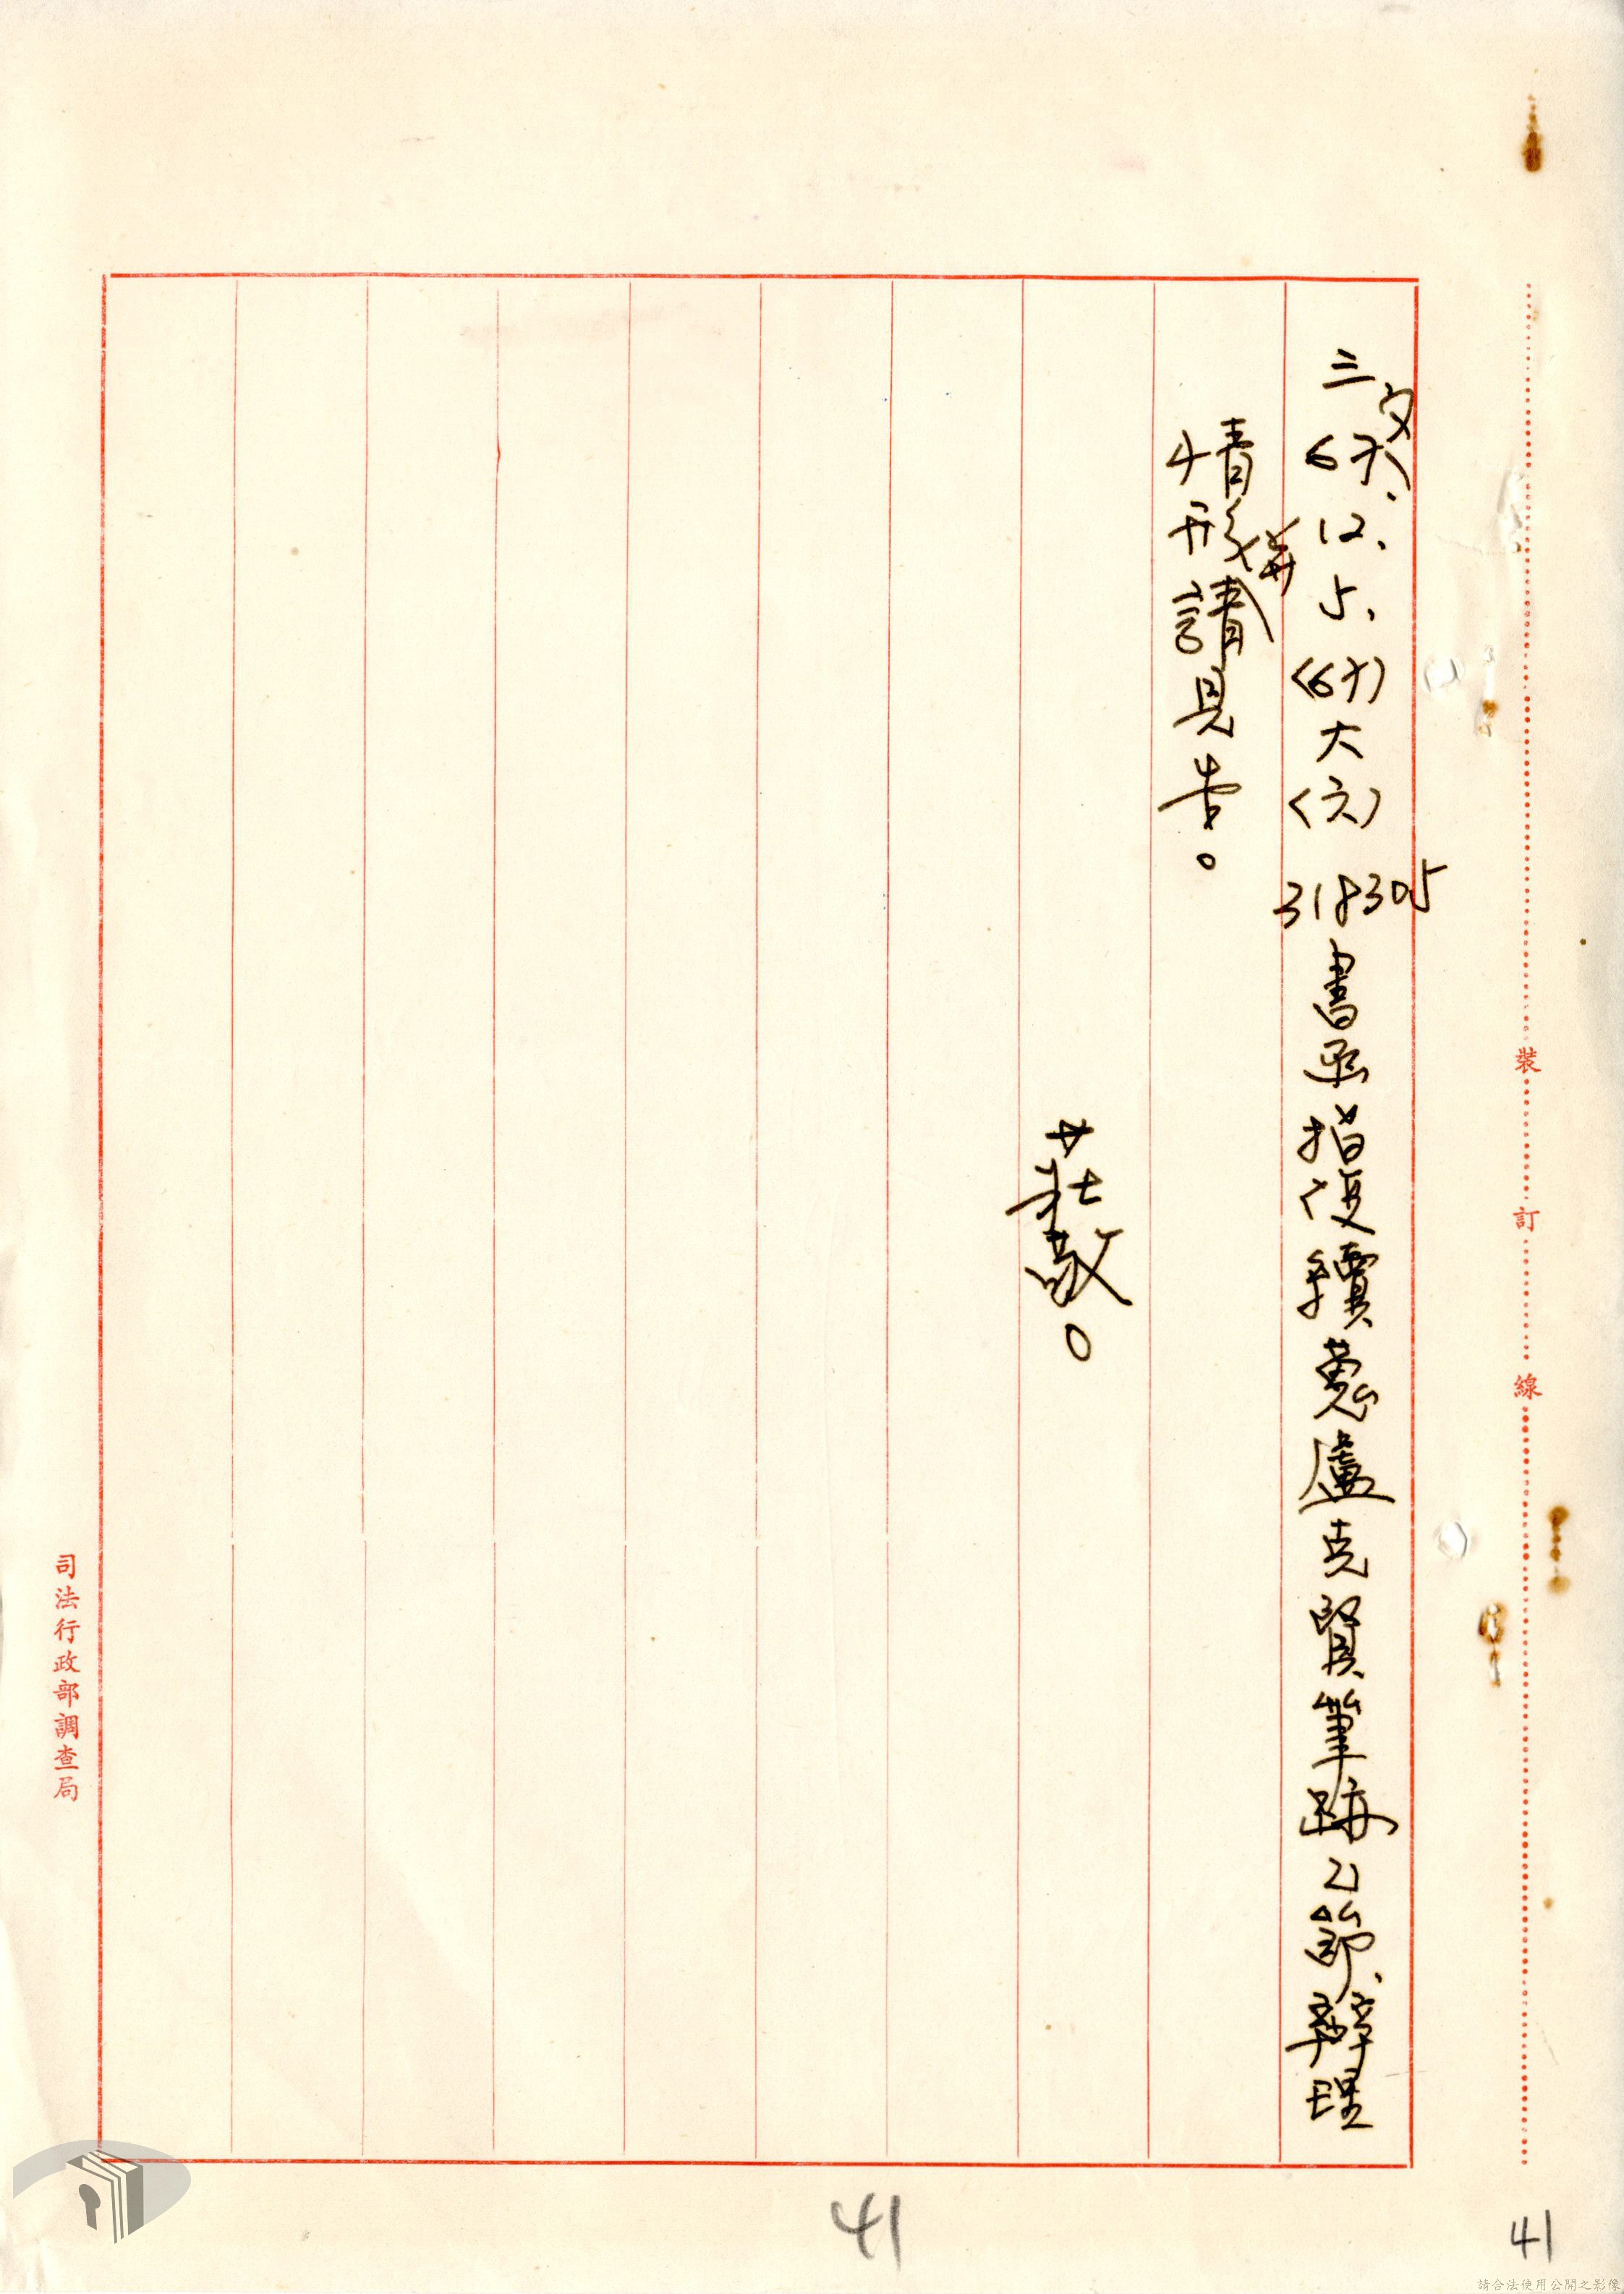 三67、12、5、(67)大(六)318305書函指復續蒐盧克賢筆跡乙節、辦理
文
情形請見告。
併
莊敬。
裝訂線
司法行政部調查局
41
41
請合法使用公開之影像